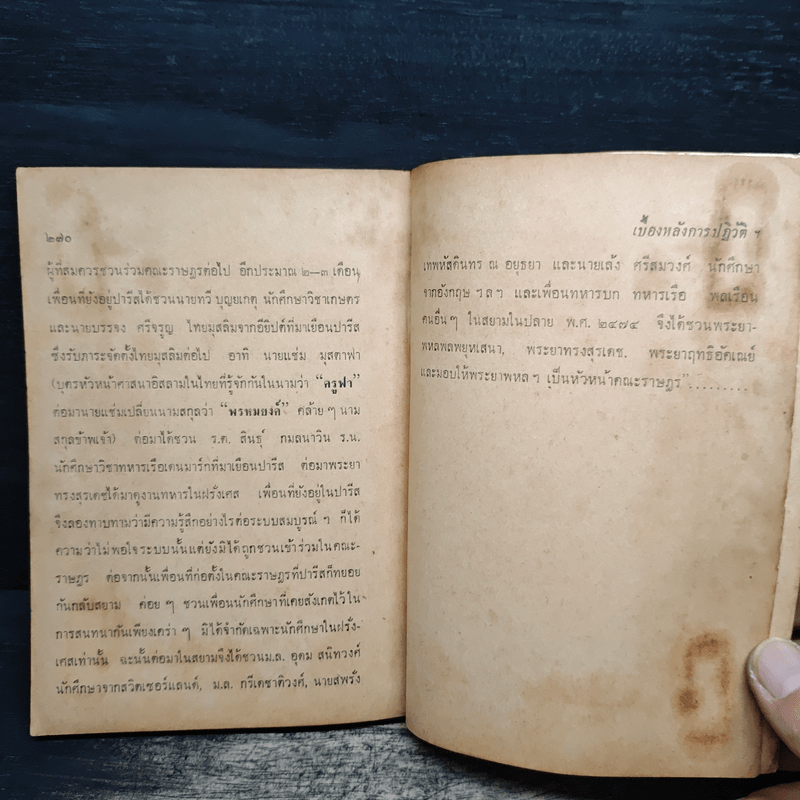 ๒๘๐
ผู้ที่สมควรชวนร่วมคณะราษฎรต่อไป อีกประมาณ ๒—๓ เดือน,
เพื่อนที่ยังอยู่ปารีสได้ชวนนายทวี บุญยเกตุ นักศึกษาวิชาเกษตร
และนายบรรจง ศรีจรูญ ไทยมุสลิมจากอียิปต์ที่มาเยือนปารีส
ซึ่งรับภาระจัดตั้งไทยมุสลิมต่อไป อาทิ นายแช่ม มุสตาฟา
(บุตรหัวหน้าศาสนาอิสลามในไทยที่รู้จักกันในนามว่า “ครูฟา”
ต่อมานายแช่มเปลี่ยนนามสกุลว่า “พรหมยงค์” คล้าย ๆ นาม
สกุลข้าพเจ้า) ต่อมาได้ชวน ร.ต. สินธุ์ กมลนาวิน ร.น.
นักศึกษาวิชาทหารเรือเดนมาร์กที่มาเยือนปารีส ต่อมาพระยา
ทรงสุรเดชได้มาดูงานทหารในฝรั่งเศส เพื่อนที่ยังอยู่ในปารีส
จึงลองทาบทามว่ามีความรู้สึกอย่างไรต่อระบบสมบูรณ์ ฯ ก็ได้
ความว่าไม่พอใจระบบนั้นแต่ยังมิได้ถูกชวนเข้าร่วมในคณะ-
ราษฎร ต่อจากนั้นเพื่อนที่ก่อตั้งในคณะราษฎรที่ปารีสก็ทยอย
กันกลับสยาม ค่อย ๆ ชวนเพื่อนนักศึกษาที่เคยสังเกตไว้ใน
การสนทนากันเพียงเคร่า ๆ มิได้จำกัดเฉพาะนักศึกษาในฝรั่ง-
เศสเท่านั้น ฉะนั้นต่อมาในสยามจึงได้ชวนม.ล. อุดม สนิทวงศ์
นักศึกษาจากสวิตเซอร์แลนด์, ม.ล. กรีเดชาติวงศ์, นายสพรั่ง
เบื้องหลังการปฏิวัติ ฯ
เทพหัสดินทร ณ อยุธยา และนายเล้ง ศรีสมวงศ์ นักศึกษา
จากอังกฤษ ฯลฯ และเพื่อนทหารบก ทหารเรือ พลเรือน
คนอื่นๆ ในสยามในปลาย พ.ศ. ๒๔๗๔ จึงได้ชวนพระยา-
พหลพลพยุหเสนา, พระยาทรงสุรเดช, พระยาฤทธิอัคเณย์
และมอบให้พระยาพหล ฯ เป็นหัวหน้าคณะราษฎร”.........